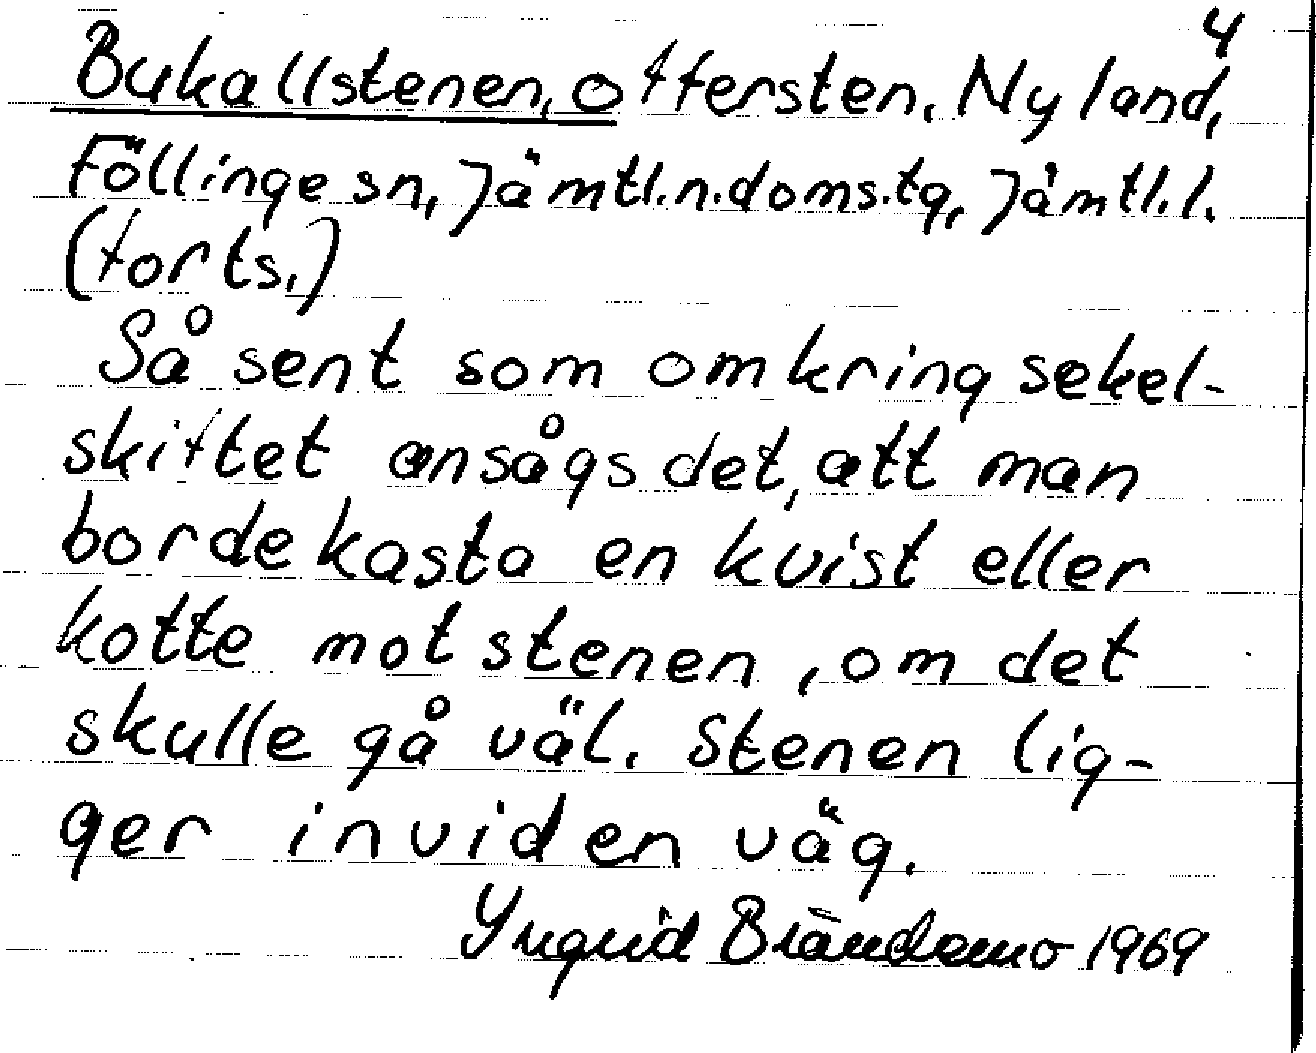 4
Bukallstenen, offersten. Nyland,
Föllinge sn, Jämtl.n.doms.tg, Jämtl.l.
(forts.)
Så sent som omkring sekel-
skiftet ansågs det, att man
borde kasta en kvist eller
kotte mot stenen, om det
skulle gå väl. Stenen lig-
ger invid en väg.
Yngvid Brändemo 1969